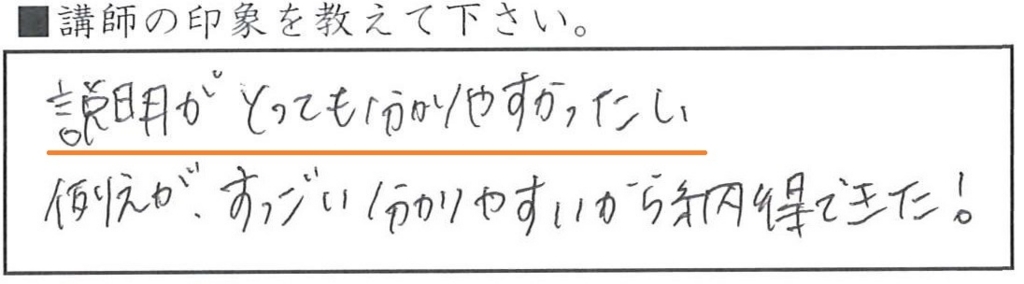 ■講師の印象を教えて下さい。
説明がとっても分かりやすかったし
例えが、すっごい分かりやすいから納得できた!